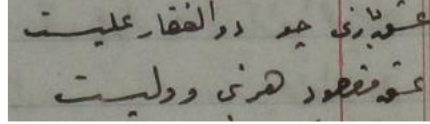 عشق بازی چو ذوالفقار علیست
عشق مقصود هر نبی و ولیست